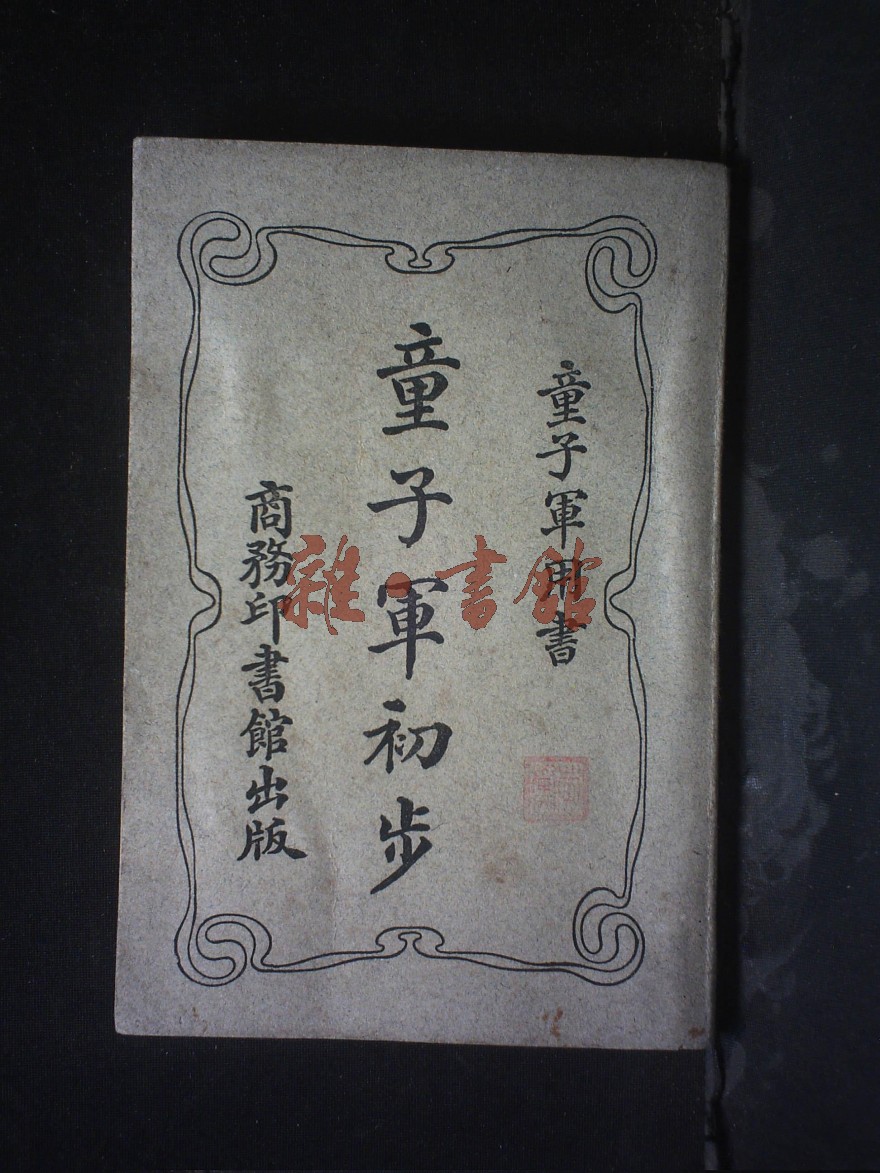 童子軍用書
童子軍初步
商務印書館出版
雜·書館